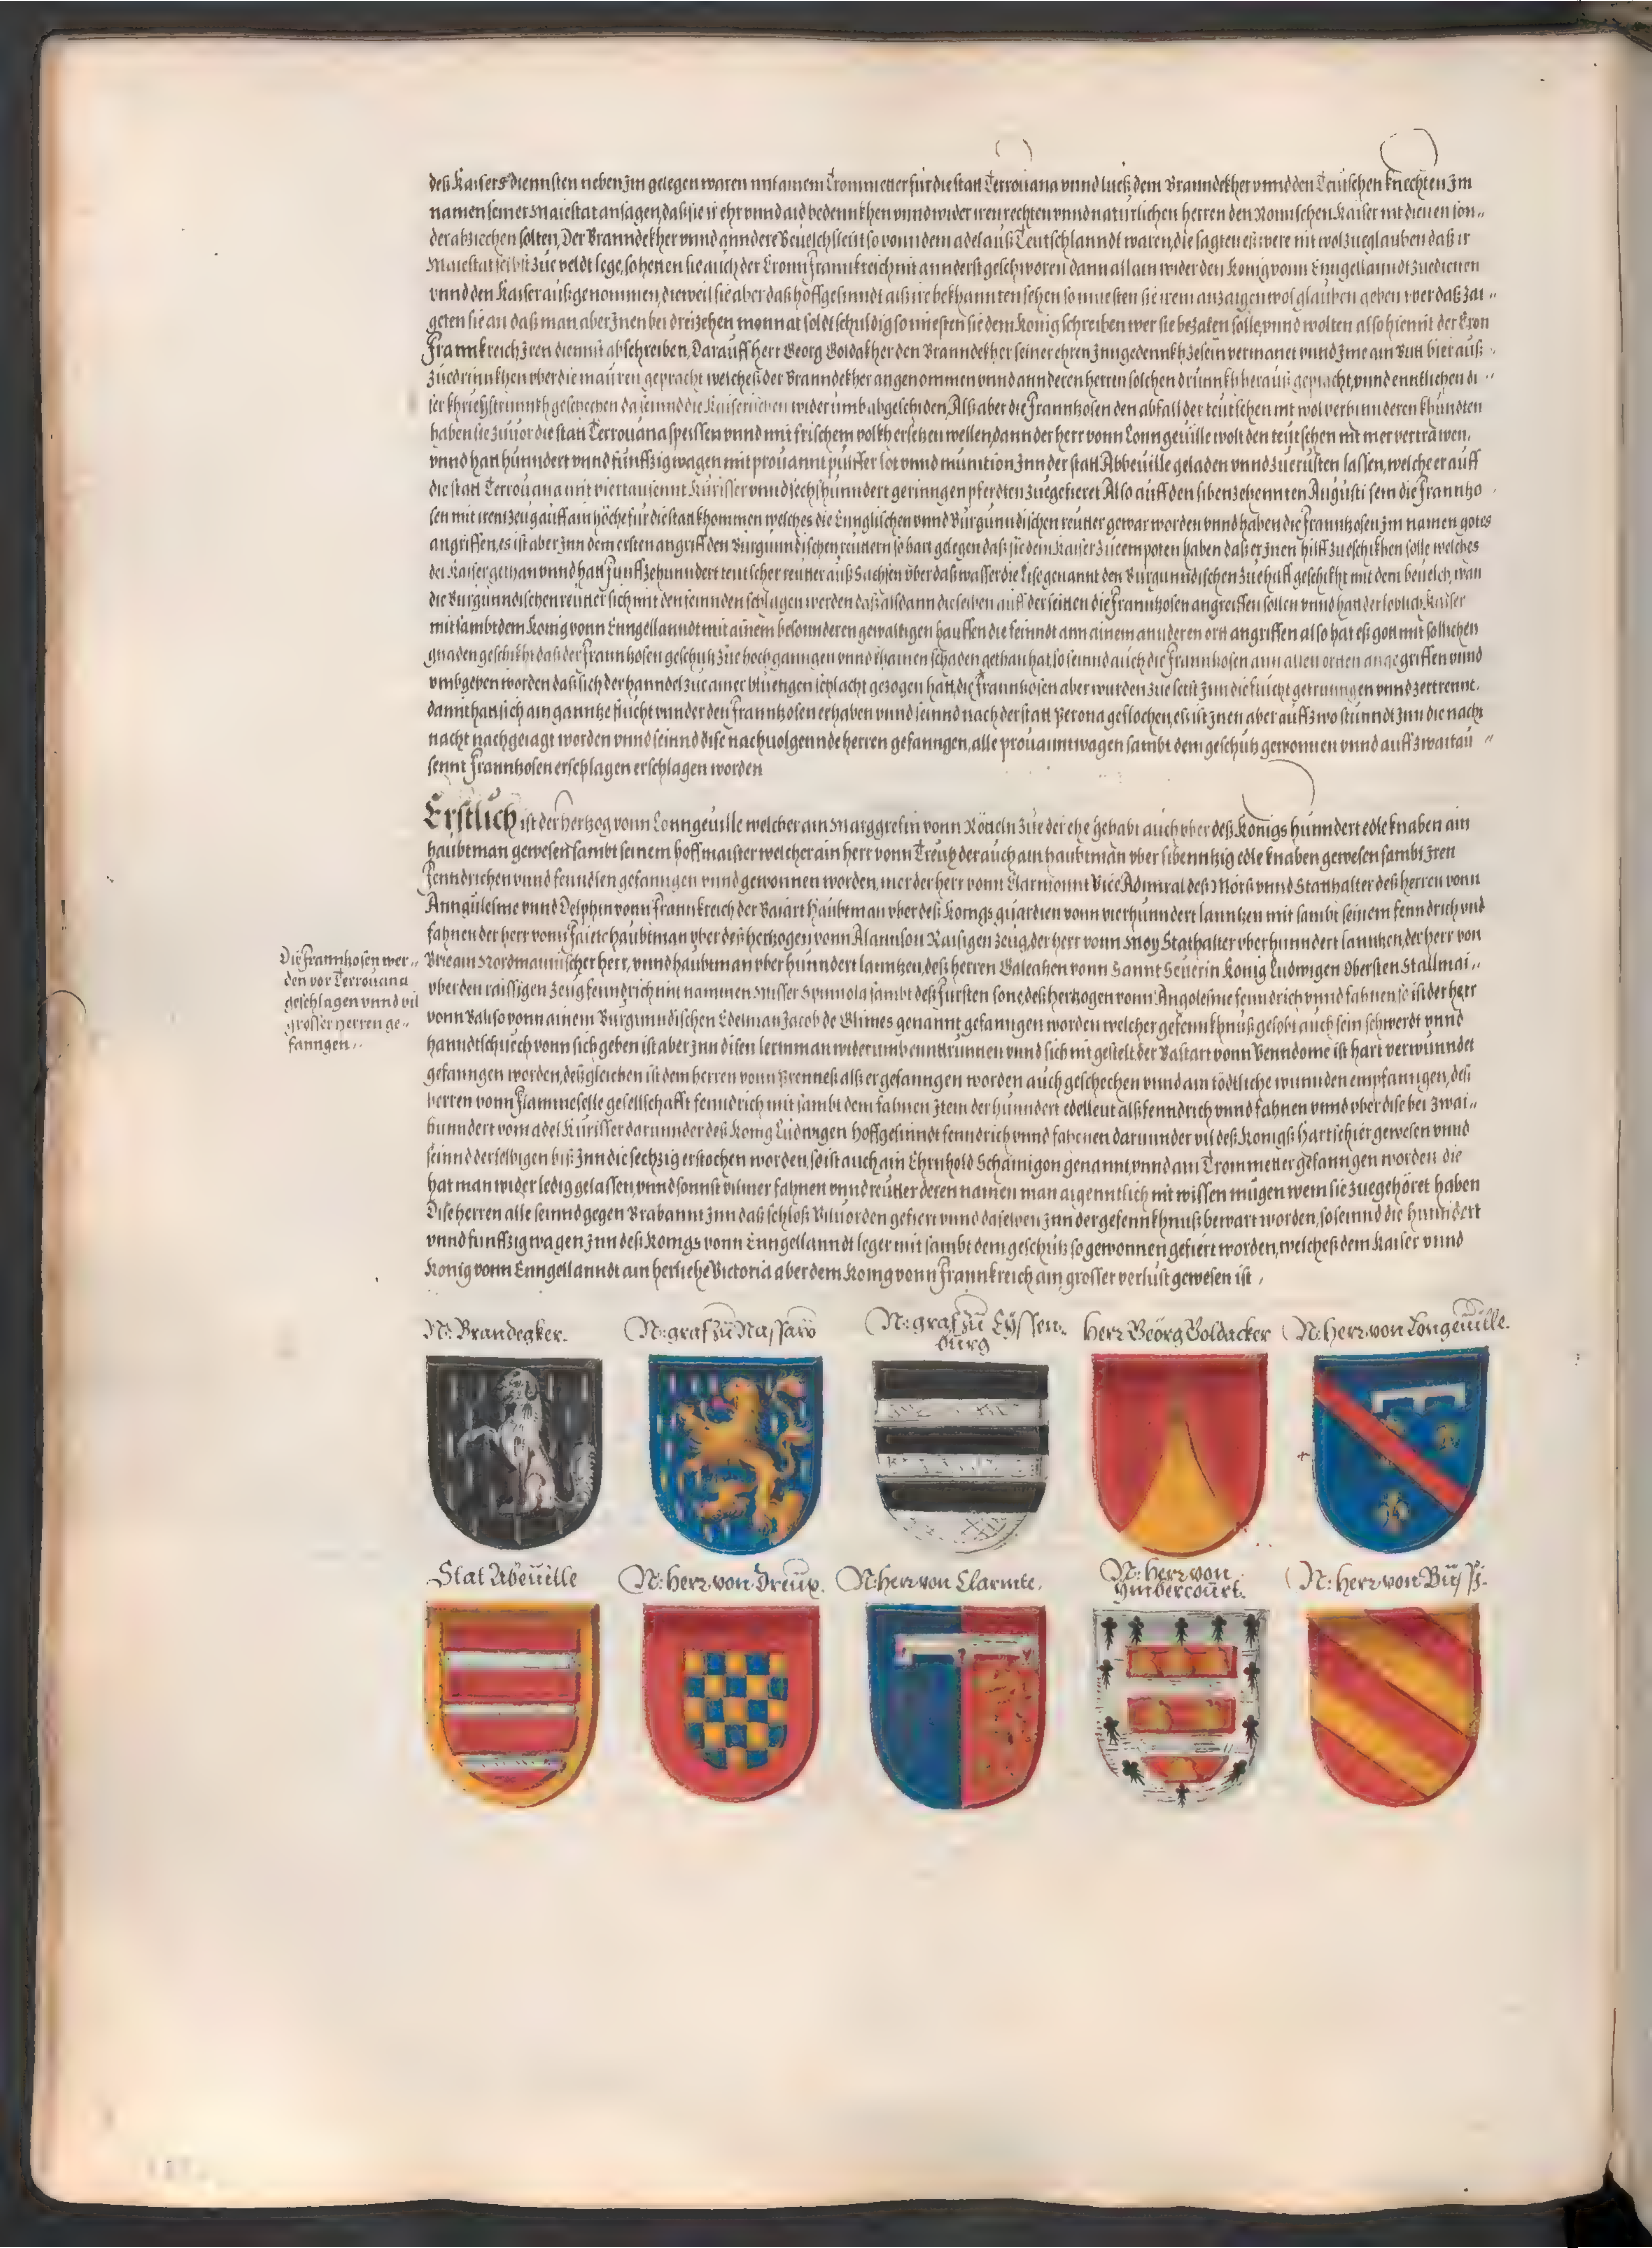 deß Kaisers diennsten neben Jm gelegen waren mit ainem Trommetter für die statt Terrouana vnnd ließ dem Branndekher vnnd den Teutschen knechten Jm
namen seiner Maiestat ansagen, daß sie ir ehr vnnd aid bedennkhen vnnd wider iren rechten vnnd natürlichen herren den Romischen Kaiser nit dienen son„
der abziechen solten, Der Branndekher vnnd anndere Beuelchsleüt so vonn dem adel auß Teutschlanndt waren, die sagten eß were nit wol zueglauben daß ir
Maiestat selbst zue veldt lege, so hetten sie auch der Cronn Frannkreich nit annderst geschworen dann allain wider den König vonn Enngellanndt zuedienen
vnnd den Kaiser außgenommen, dieweil sie aber daß hoffgesinndt alß ire bekhannten sehen so muesten sie irem anzaigen wol glauben geben vber daß zai„
geten sie an daß man aber Jnen bei dreizehen monnat soldt schuldig so müesten sie dem König schreiben wer sie bezalen solle, vnnd wolten also hiemit der Cron
Frannkreich Jren diennst abschreiben, Darauff herr Georg Boldakher den Branndekher seiner ehren Jnngedennkh ze sein vermanet vnnd Jme ain Butt bier auß„
zuedrinnkhen vber die mauren gepracht welcheß der Branndekher angenommen vnnd annderen herren solchen drunnkh herauß gepracht, vnnd enntlichen di„
ser khriegstrunnkh geschechen da seinnd die Kaiserischen widerumb abgeschiden, Alß aber die Frannhosen den abfall der teutschen nit wol verhinnderen khundten
haben sie zuuor die statt Terrouana speissen vnnd mit frischem volkh ersetzen wellen, dann der herr vonn Lonngeuille wolt den teutschen nit mer vertrawen,
vnnd hatt hunndert vnnd fünffzig wagen mit prouannt pulffer lot vnnd munition Jnn der statt Abbeuille geladen vnnd zuerüsten lassen, welche er auff
die statt Terrouana mit viertausennt Kürisser vnnd sechshunndert geringen pferdten zuegefieret Also auff den sibenzehennten Augusti sein die Frannho„
sen mit irem zeug auff ain höche für die statt khommen welches die Ennglischen vnnd Burgunndischen reutter gewar worden vnnd haben die Frannhosen Jm namen gotes
angriffen, es ist aber Jnn dem ersten angriff den Burgunndischen reuttern so hart gelegen daß sie dem Kaiser zueempoten haben daß er Jnen hilff zueschikhen solle welches
der Kaiser gethan vnnd hatt funffzehunndert teutscher reutter auß Sachsen vber daß wasser die Lise genannt den Burgunndischen zue hilff geschikht mit dem beuelch, wan
die Burgunndischen reutter sich mit den feinnden schlagen werden daß alßdann dieselben auff der seitten die Frannhosen angreiffen sollen vnnd hat der loblich Kaiser
mit sambt dem König vonn Enngellanndt mit ainem besonnderen gewaltigen hauffen die feinndt ann ainem annderen ort angriffen also hat eß gott mit sollichen
gnaden geschikht daß der Frannhosen geschutz zue hoch ganngen vnnd khainen schaden gethan hat, so seinnd auch die Frannhosen ann allen orten angegriffen vnnd
vmbgeben worden daß sich der hanndel zue ainer bluetigen schlacht gezogen hatt, die Frannhosen aber wurden zue letst Jnn die flucht getrunngen vnnd zertrennt,
dann hat sich ain ganntze flucht vnnder den Frannhosen erhaben vnnd seinnd nach der statt Perona geflochen, eß ist Jnen aber auff zwo stunndt Jnn die nacht
nacht nachgeiagt worden vnnd seinnd dise nachuolgennde herren gefanngen, alle prouanntwagen sambt dem geschütz gewonnen vnnd auff zwaitau„
sennt Frannhosen erschlagen erschlagen worden
Erstlich ist der hertzog vonn Lonngeuille welcher ain Marggrefin vonn Rötteln zue der ehe gehabt auch vber deß Königs hunndert edle knaben ain
haubtman gewesen sambt seinem hoffmaister welcher ain herr vonn Treux der auch ain haubtman vber sibenntzig edle knaben gewesen sambt Jren
fenndrichen vnnd fenndlen gefanngen vnnd gewonnen worden, mer der herr vonn Clarmonnt Vice Admiral deß Mörs vnnd Statthalter deß herren vonn
Anngulesme vnnd Delphin vonn Frannkreich der Baiart Haubtman vber deß Königs guardien vonn vierhunndert lanntzen mit sambt seinem fenndrich vnd
fahnen der herr vonn Faitte haubtman vber deß hertzogen vonn Alannson Raisigen zeug, der herr vonn Moy Stathalter vber hunndert lanntzen, der herr von
Brie ain Nordmannischer herr, vnnd haubtman vber hunndert lanntzen, deß herren Galeatzen vonn Sannt Seuerin König Ludwigen Obersten Stallmai„
vber den raissigen zeug fenndrich mit nammen Misser Spinnola sambt deß fursten sone, deß hertzogen vonn Angolesme fenndrich vnnd fahnen so ist der herr
vonn Balis o vonn ainem Burgunndischen Edelman Jacob de Glimes genannt gefanngen worden welcher gefennkhnuß gelobt auch sein schwerdt vnnd
hanndtschuech vonn sich geben ist aber Jnn disen lermman widerumb enntrunnen vnnd sich nit gestelt, der Bastart vonn Venndome ist hart verwunndet
gefanngen worden, deßgleichen ist dem herren vonn Prenneß alß er gefanngen worden auch geschechen vnnd ain tödtliche wunnden empfanngen, deß
herren vonn Flammeselle gesellschafft fenndrich mit sambt dem fahnen Jtem der hunndert edelleut alß fenndrich vnnd fahnen vnnd vber dise bei zwai„
hunndert vom adel Kürisser darunnder deß König Ludwigen hoffgesinndt fenndrich vnnd fahnen darunnder vil deß Königß Hartschier gewesen vnnd
seinnd derselbigen biß Jnn die sechzig erstochen worden, so ist auch ain Ehrnhold Schamigon genannt, vnnd ain Trommetter gefanngen worden die
hat man wider ledig gelassen, vnnd sonnst vil mer fahnen vnnd reutter deren namen man aigenntlich nit wissen mügen wem sie zuegehöret haben
Dise herren alle seinnd gegen Brabannt Jnn daß schloß Viluorden gefiert vnnd daselben Jnn der gefennkhnuß bewart worden, so seinnd die hunndert
vnnd funffzig wagen Jnn deß Königs vonn Enngellanndt leger mit sambt dem geschütz so gewonnen gefiert worden, welcheß dem Kaiser vnnd
König vonn Enngellanndt ain herliche Victoria aber dem König vonn Frannkreich ain grosser verlust gewesen ist,
Die Frannhosen wer„
den vor Terrouana
geschlagen vnnd vil
grosser herren ge„
fanngen„
N: Brandegker.
N: graf zů Nassaw
N: graf zů Eÿssen„
burg
Herr Geörg Boldacker
N: herr von Longeuille.
Stat Abeuille
N: herr von Dreux.
N: herr von Clarmte.
N: herr von
Ymbercourt.
N: herr von Bussi.